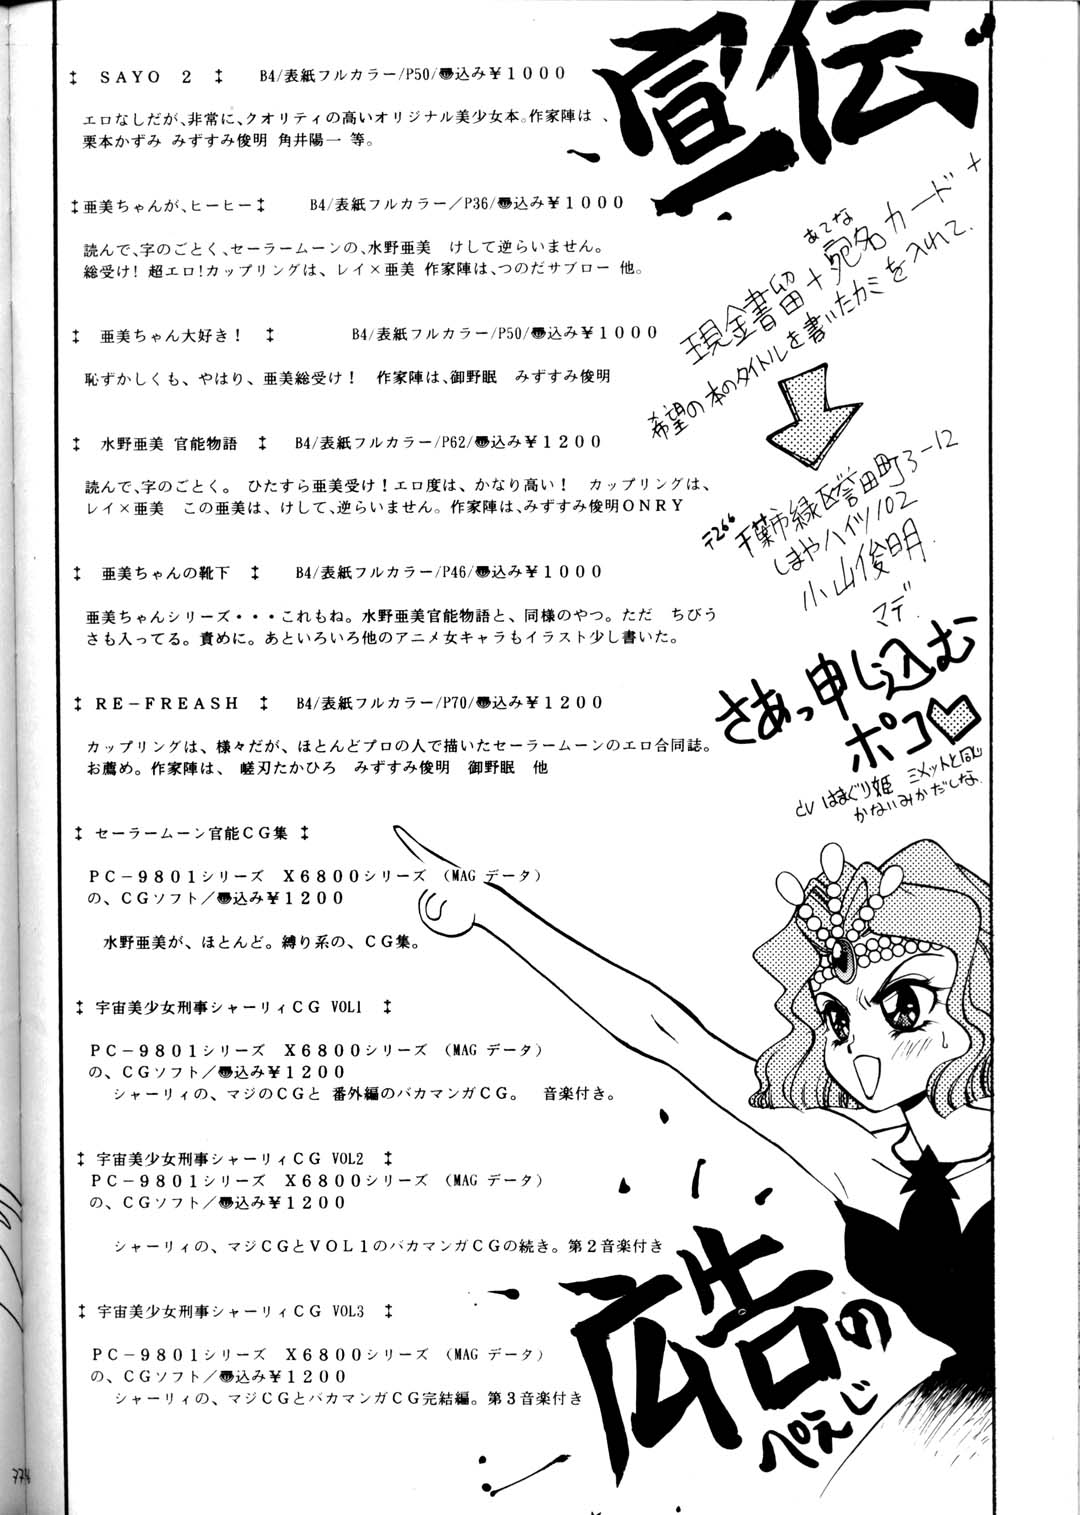 宣伝
‡ SAYO 2 ‡ B4/表紙フルカラー/P50/〠込み￥1000
エロなしだが、非常に、クオリティの高いオリジナル美少女本。作家陣は 、
栗本かずみ みずすみ俊明 角井陽一 等。
‡亜美ちゃんが、ヒーヒー‡ B4/表紙フルカラー／P36/〠込み￥1000
読んで、字のごとく、セーラームーンの、水野亜美 けして逆らいません。
総受け! 超エロ!カップリングは、レイ×亜美 作家陣は、つのだサブロー 他。
‡ 亜美ちゃん大好き！ ‡ B4/表紙フルカラー/P50/〠込み￥1000
恥ずかしくも、やはり、亜美総受け！ 作家陣は、御野眠 みずすみ俊明
‡ 水野亜美 官能物語 ‡ B4/表紙フルカラー/P62/〠込み￥1200
読んで、字のごとく。 ひたすら亜美受け！エロ度は、かなり高い！ カップリングは、
レイ×亜美 この亜美は、けして、逆らいません。作家陣は、みずすみ俊明ONRY
‡ 亜美ちゃんの靴下 ‡ B4/表紙フルカラー/P46/〠込み￥1000
亜美ちゃんシリーズ・・・これもね。水野亜美官能物語と、同様のやつ。ただ ちびう
さも入ってる。責めに。あといろいろ他のアニメ女キャラもイラスト少し書いた。
‡ RE−FREASH ‡ B4/表紙フルカラー/P70/〠込み￥1200
カップリングは、様々だが、ほとんどプロの人で描いたセーラームーンのエロ合同誌。
お薦め。作家陣は、 嵯刃たかひろ みずすみ俊明 御野眠 他
‡ セーラームーン官能CG集 ‡
PC−9801シリーズ X6800シリーズ （MAG データ）
の、CGソフト／〠込み￥1200
水野亜美が、ほとんど。縛り系の、CG集。
‡ 宇宙美少女刑事シャーリィCG VOL1 ‡
PC−9801シリーズ X6800シリーズ （MAG データ）
の、CGソフト／〠込み￥1200
シャーリィの、マジのCGと 番外編のバカマンガCG。 音楽付き。
‡ 宇宙美少女刑事シャーリィCG VOL2 ‡
PC−9801シリーズ X6800シリーズ （MAG データ）
の、CGソフト／〠込み￥1200
シャーリィの、マジCGとVOL1のバカマンガCGの続き。第2音楽付き
‡ 宇宙美少女刑事シャーリィCG VOL3 ‡
PC−9801シリーズ X6800シリーズ （MAG データ）
の、CGソフト／〠込み￥1200
シャーリィの、マジCGとバカマンガCG完結編。第3音楽付き
あてな
現金書留＋宛名カード＋
希望の本のタイトルを書いたカミを入れて.
〒266
千葉市緑区誉田町3-12
しまやハイツ102
小山俊明
マデ.
さあっ申し込む
ポコ♡
CV はまぐり姫 ミメットと同じ
かないみかだしな.
広告の
ぺえじ